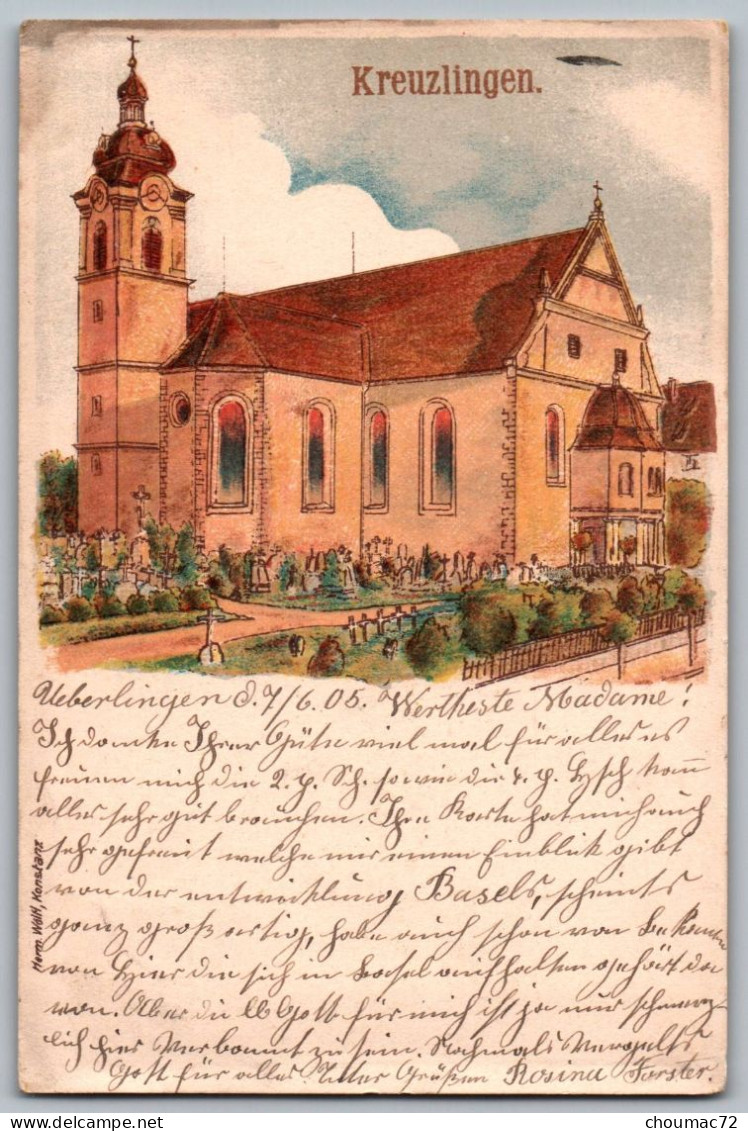 Kreuzlingen.
Ueberlingen d. 7/6. 05. Wertheste Madame!
Ich danke Ihrer Güte viel mal für alles es
freuen mich die 2. p. Sch. sowie die 4. p. kann
alles sehr gut brauchen. Ihre Karte hat mich auch
sehr gefreut welche mir einen Einblick gibt
von der entwicklung Basels, scheints
ganz großartig, habe auch schon von bekannten
von hier die sich in Basel aufhalten gehört da
von. Aber du lb Gott für mich ist ja nur schmerz
lich hier verbannt zu sein. Nochmals Vergelts
Gott für alles. Unter Grüßen Rosina Forster.
Herm. Wolff, Konstanz
choumac72